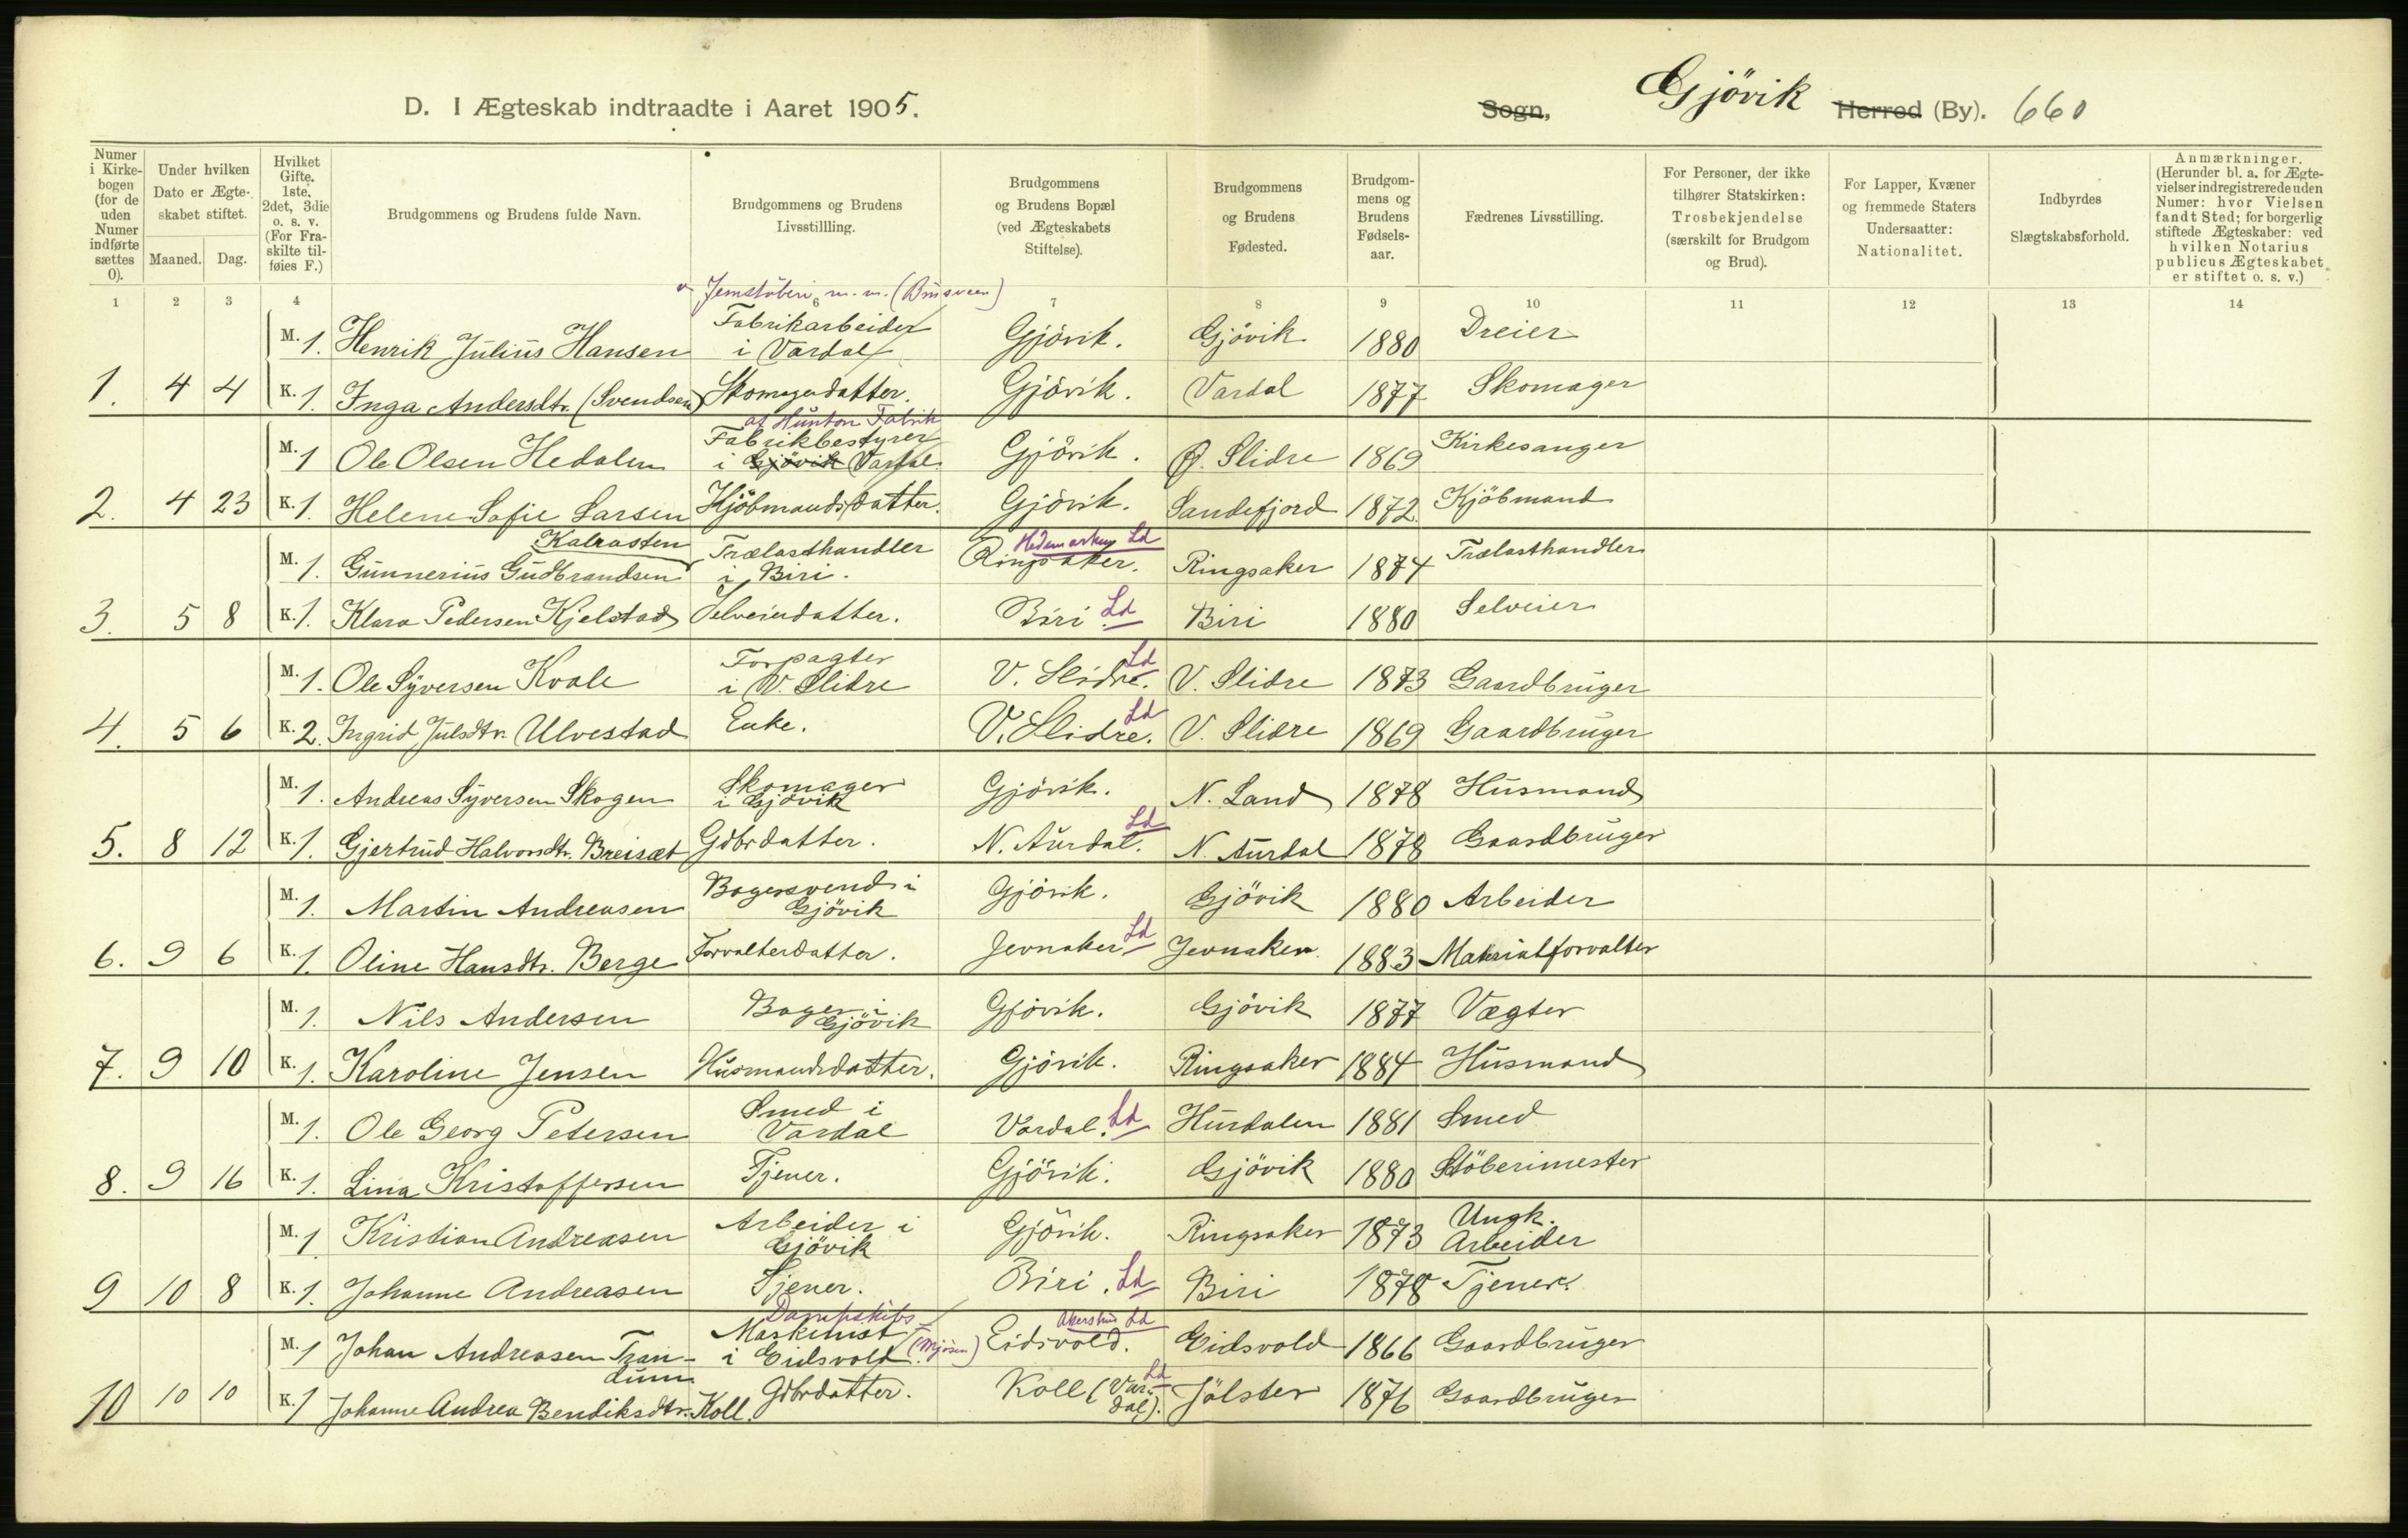 D. I Ægteskab indtraadte i Aaret 1905.
Sogn, Gjövik Herred (By). 660
Numer i Kirke-bogen (for de uden Numer indførte sættes 0).
Under hvilken Dato er Ægte-skabet stiftet.
Maaned. Dag.
Hvilket Gifte. 1ste, 2det, 3die o. s. v. (For Fra-skilte til-føies F.)
Brudgommens og Brudens fulde Navn.
Brudgommens og Brudens Livsstillling.
Brudgommens og Brudens Bopæl (ved Ægteskabets Stiftelse).
Brudgommens og Brudens Fødested.
Brudgom-mens og Brudens Fødsels-aar.
Fædrenes Livsstilling.
For Personer, der ikke tilhører Statskirken: Trosbekjendelse (særskilt for Brudgom og Brud).
For Lapper, Kvæner og fremmede Staters Undersaatter: Nationalitet.
Indbyrdes Slægtskabsforhold.
Anmærkninger. (Herunder bl. a. for Ægte-vielser indregistrerede uden Numer: hvor Vielsen fandt Sted; for borgerlig stiftede Ægteskaber: ved hvilken Notarius publicus Ægteskabet er stiftet o. s. v.)
1 2 3 4 6 7 8 9 10 11 12 13 14
Jernstöberi m. m. (Brusveen)
M. 1. Henrik Julius Hansen Fabrikarbeider i Vardal Gjövik. Gjövik 1880 Dreier
1. 4 4 K. 1. Inga Andersdtr. (Svendsen) Skomagerdatter. Gjövik. Vardal 1877 Skomager
af Hunton Fabrik
M. 1 Ole Olsen Hedalen Fabrikbestyrer i Gjövik Vardal. Gjövik. Ø. Slidre 1869 Kirkesanger
2. 4 23 K. 1. Helene Sofie Larsen Kjöbmandsdatter. Gjövik. Sandefjord 1872 Kjöbmand
Kalrasten Hedemarken Ld
M. 1. Gunnerius Gudbrandsen Trælasthandler i Biri. Ringsaker. Ringsaker 1874 Trælasthandler
3. 5 8 K. 1. Klara Pedersen Kjelstad Selveierdatter. Biri Ld Biri 1880 Selveier
M. 1. Ole Syversen Kvale Forpagter i V. Slidre V. Slidre. Ld V. Slidre 1873 Gaardbruger
4. 5 6 K. 2. Ingrid Julsdtr. Ulvestad Enke. V. Slidre. Ld V. Slidre 1869 Gaardbruger
M. 1. Andreas Syversen Skogen Skomager i Gjövik Gjövik. N. Land 1878 Husmand
5. 8 12 K. 1. Gjertrud Halvorsdtr. Breisæt Gdbrdatter. N. Aurdal. Ld N. Aurdal 1878 Gaardbruger
M. 1. Martin Andreasen Bagersvend i Gjövik Gjövik. Gjövik 1880 Arbeider
6. 9 6 K. 1. Oline Hansdtr. Berge Forvalterdatter. Jevnaker Ld Jevnaker. 1883 Materialforvalter
M. 1. Nils Andersen Bager i Gjövik Gjövik. Gjövik 1877 Vægter
7. 9 10 K. 1. Karoline Jensen Husmandsdatter. Gjövik. Ringsaker 1884 Husmand
M. 1. Ole Georg Petersen Smed i Vardal Vardal. Ld Hurdalen 1881 Smed
8. 9 16 K. 1. Lina Kristoffersen Tjener. Gjövik. Gjövik 1880 Stöberimester
M. 1. Kristian Andreasen Arbeider i Gjövik Gjövik. Ringsaker 1873 Ungk. Arbeider
9 10 8 K. 1. Johanne Andreasen Tjener. Biri. Ld Biri 1878 Tjener.
Dampskibs Akershus Ld
M. 1 Johan Andreasen Tran-dum Maskinist i Eidsvold. (Mjösen) Eidsvold. Eidsvold 1866 Gaardbruger
10 10 10 K. 1 Johanne Andrea Bendiksdtr. Koll Gdbrdatter. Koll (Var-dal). Ld Jölster 1876 Gaardbruger